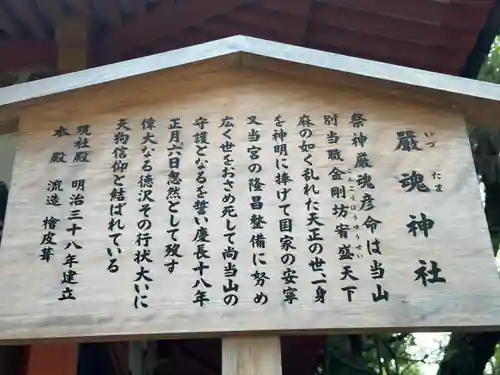 厳魂神社
いづたま
祭神厳魂彦命は当山
別当職金剛坊宥盛天下
こんごうぼうゆうせい
麻の如く乱れた天正の世、一身
を神明に捧げて国家の安寧
又当宮の隆昌整備に努め
広く世をおさめ死して尚当山の
守護となるを誓い慶長十八年
正月六日忽然として歿す
偉大なる徳沢その行状大いに
天狗信仰と結ばれている
現社殿 明治三十八年建立
本殿 流造 檜皮葺